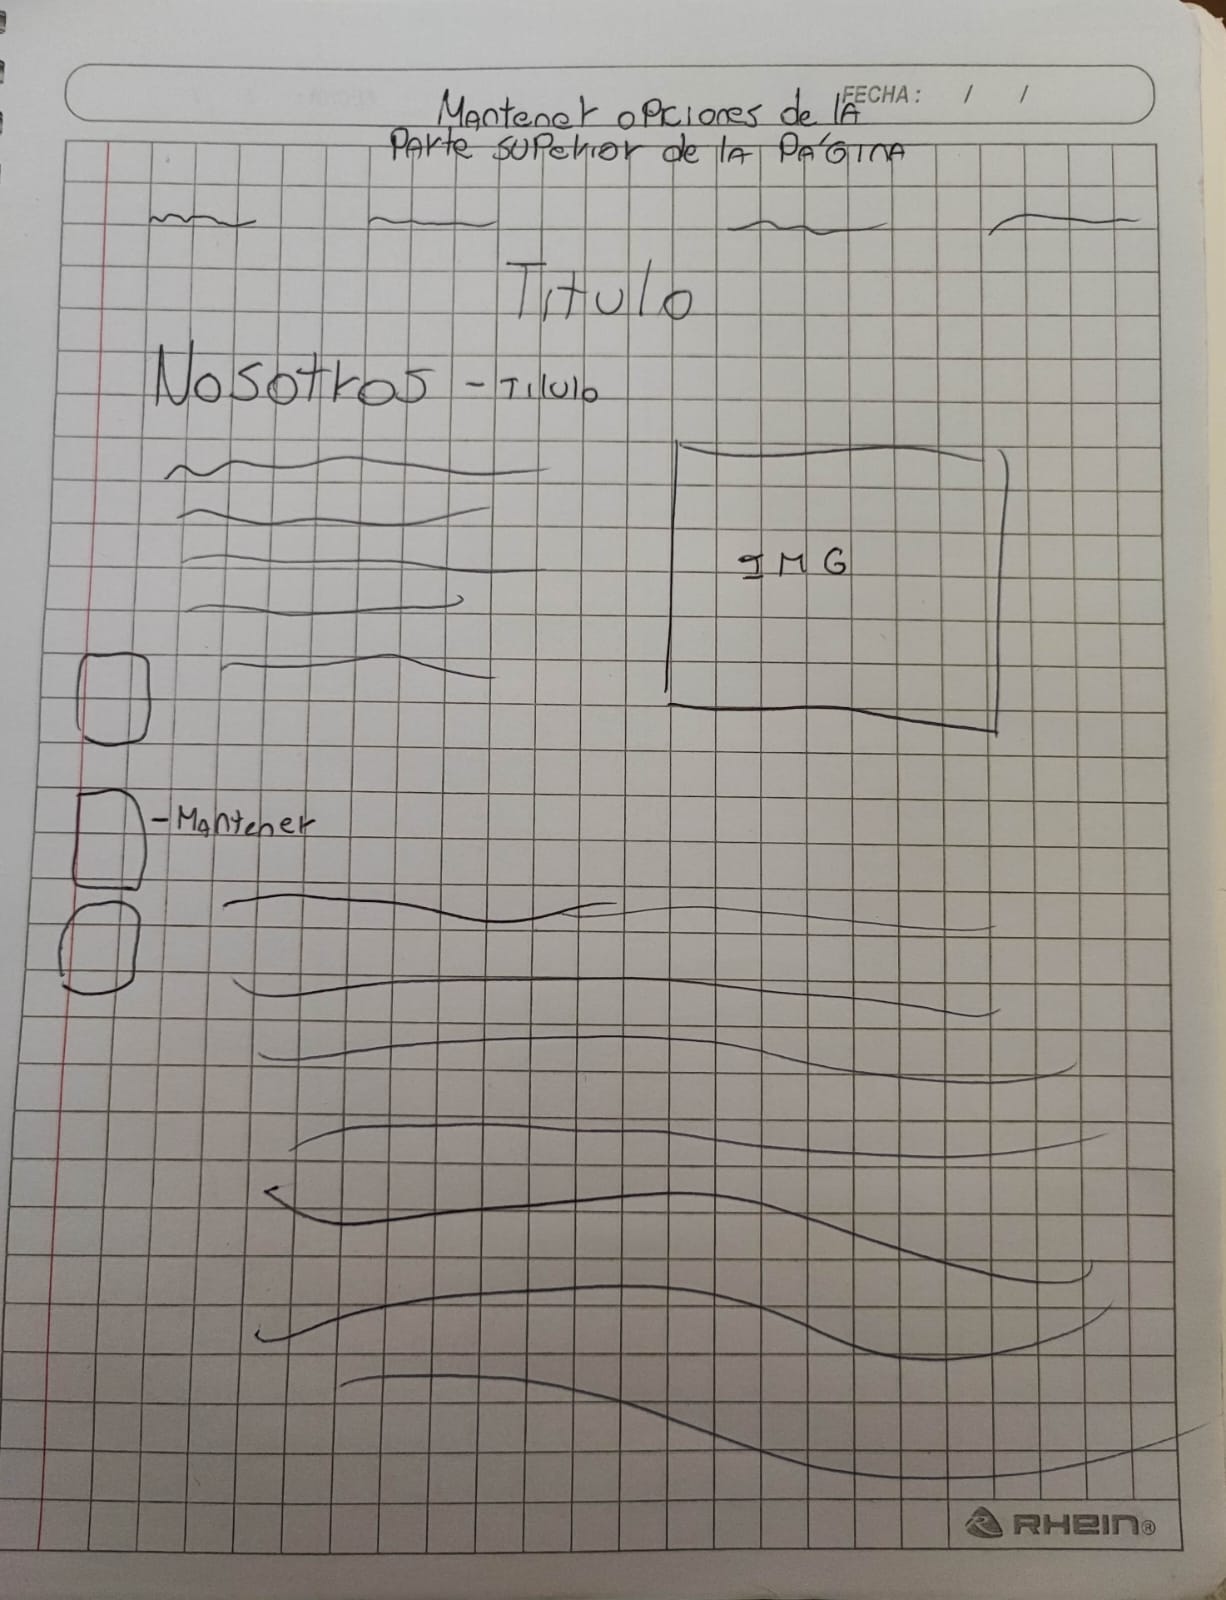 FECHA: / /
Mantener opciones de lA
PArte superior de lA PáGinA
Titulo
Nosotros - Titulo
IMG
- Mantener
RHEIN®